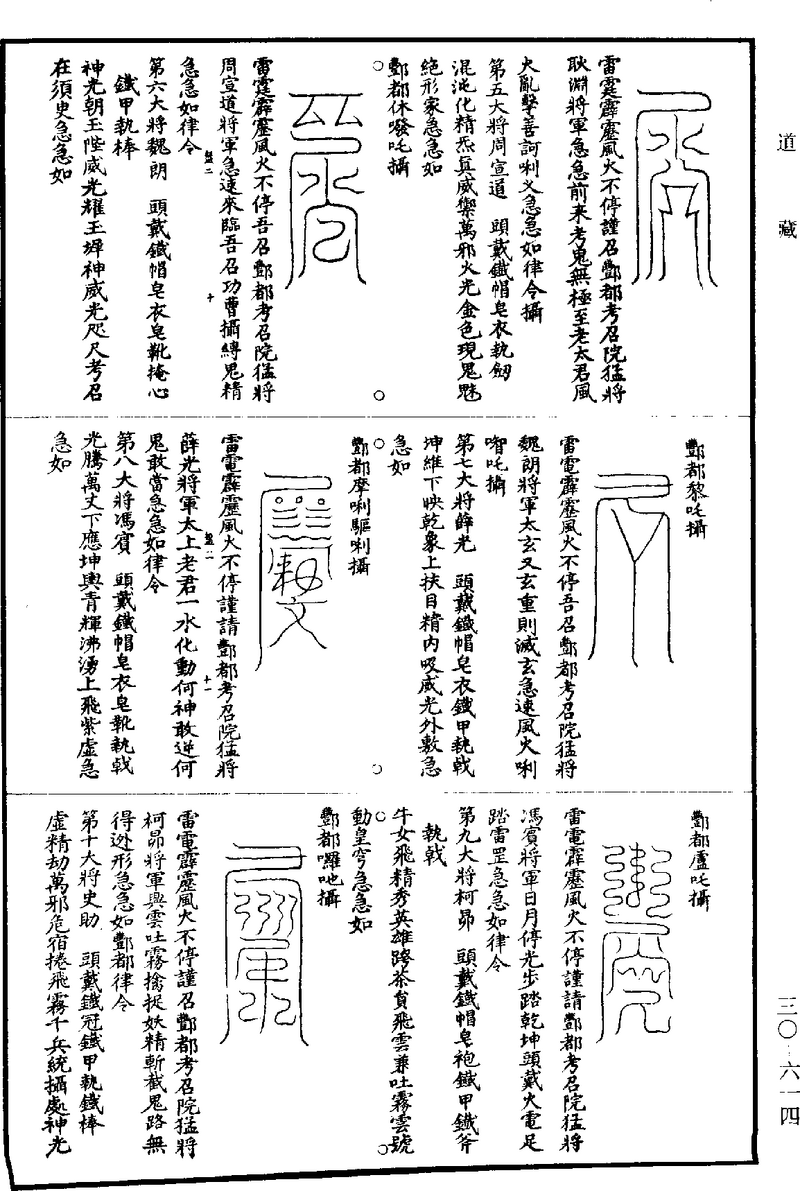 道藏
三〇-六一四
雷霆霹靂風火不停謹召酆都考召院猛將
耿淵將軍急急前來考鬼無極至老太君風
火亂擊善訶唎义急急如律令攝
第五大將周宣道　頭戴鐵帽皂衣執劒
混沌化精炁真威禦萬邪火光金色現鬼魅
絕形家急急如
酆都休發吒攝
雷霆霹靂風火不停吾召酆都考召院猛將
周宣道將軍急速來臨吾召功曹攝縛鬼精
急急如律令
第六大將魏朗　頭戴鐵帽皂衣皂靴掩心
鐵甲執棒
神光朝王陛威光耀王墀神威光咫尺考召
在須臾急急如
酆都黎吒攝
雷電霹靂風火不停吾召酆都考召院猛將
魏朗將軍太玄又玄重則滅玄急速風火唎
㗌吒攝
第七大將薛光　頭戴鐵帽皂衣鐵甲執戟
坤維下映乾象上扶目精內吸威光外敷急
急如
酆都摩唎驅唎攝
雷電霹靂風火不停謹請酆都考召院猛將
薛光將軍太上老君一水化動何神敢逆何
鬼敢當急急如律令
第八大將馮賓　頭戴鐵帽皂衣皂靴執戟
光騰萬丈下應坤輿青輝沸湧上飛紫虛急
急如
酆都盧吒攝
雷電霹靂風火不停謹請酆都考召院猛將
馮賓將軍日月停光步踏乾坤頭戴火電足
踏雷罡急急如律令
第九大將柯昂　頭戴鐵帽皂袍鐵甲鐵斧
執戟
牛女飛精秀英雄跨茶負飛雲兼吐霧雲號
動皇穹急急如
酆都囉吔攝
雷電霹靂風火不停謹召酆都考召院猛將
柯昂將軍興雲吐霧擒捉妖精斬截鬼路無
得逊形急急如酆都律令
第十大將史助　頭戴鐵冠鐵甲執鐵棒
虛精劫萬邪危宿捲飛霧千兵統攝處神光